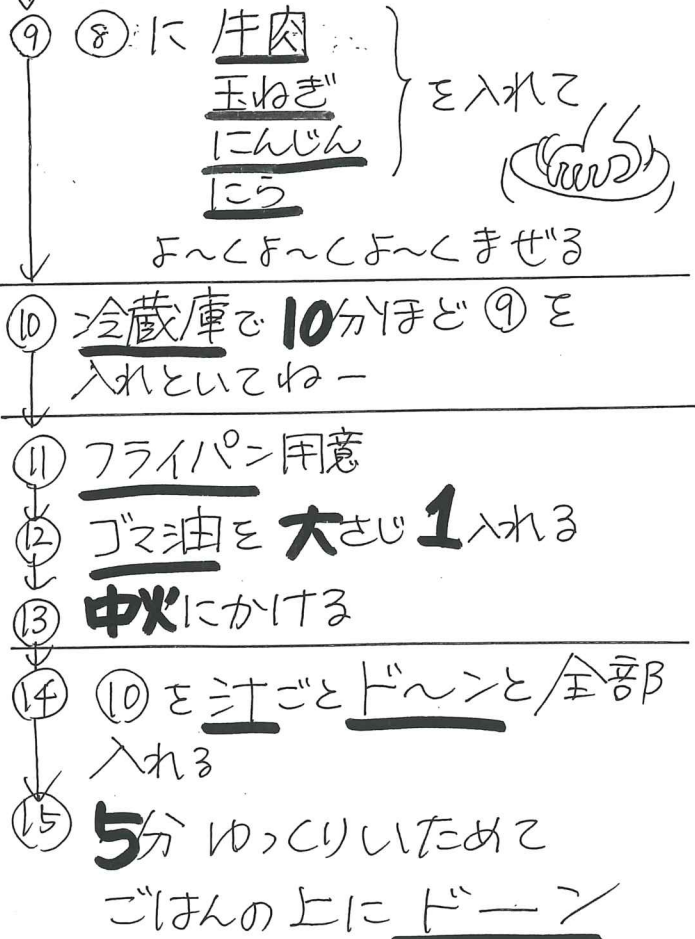 ⑨ ⑧に 牛肉
玉ねぎ
にんじん
にら
を入れて
よ〜くよ〜くよ〜くまぜる
⑩ 冷蔵庫で10分ほど⑨を
入れといてねー
⑪ フライパン用意
⑫ ゴマ油を大さじ1入れる
⑬ 中火にかける
⑭ ⑩を汁ごとド〜ンと全部
入れる
⑮ 5分ゆっくりいためて
ごはんの上にドーン